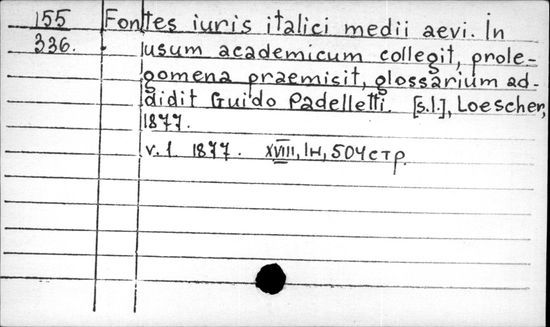 155 Fontes iuris italici medii aevi. In
336. usum academicum collegit, prole-
gomena praemisit, glossarium ad-
didit Guido Padelletti. [s.l.], Loescher,
1877.
v. 1 1877. XVIII, 1н, 504 стр.